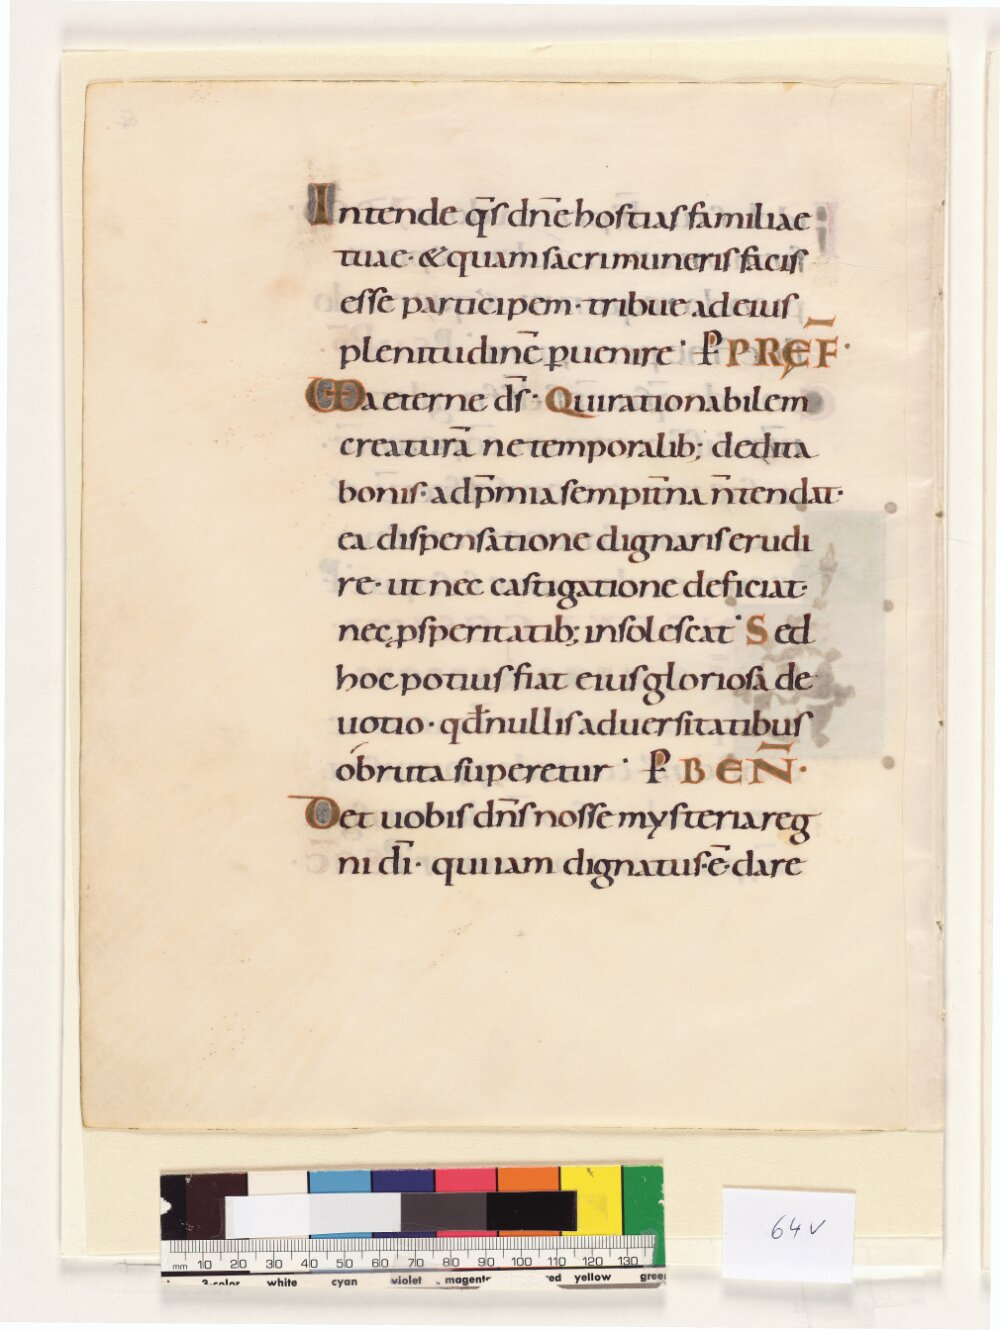 Intende q̄s dn̄e hostias familiae
tuae· & quam sacri muneris facis
esse participem· tribue ad eius
plenitudinē ꝑuenire· ꝑ PRĘF̄·
VD aeterne ds̄· Qui rationabilem
creaturā ne temporalib; dedita
bonis· ad p̄mia sempit̄na n̄ tendat·
ea dispensatione dignaris erudi
re· ut nec castigatione deficiat·
nec ꝓsperitatib; insolescat· Sed
hoc potius fiat eius gloriosa de
uotio· qđ nullis aduersitatibus
obruta superetur· ꝑ BEN̄·
Det uobis dn̄s nosse mysteria reg
ni dī· qui iam dignatus·ē·dare
64v
mm 10 20 30 40 50 60 70 80 90 100 110 120 130
3-color white cyan violet magenta red yellow green